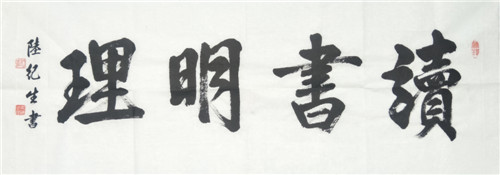 讀書明理
陸紀生書